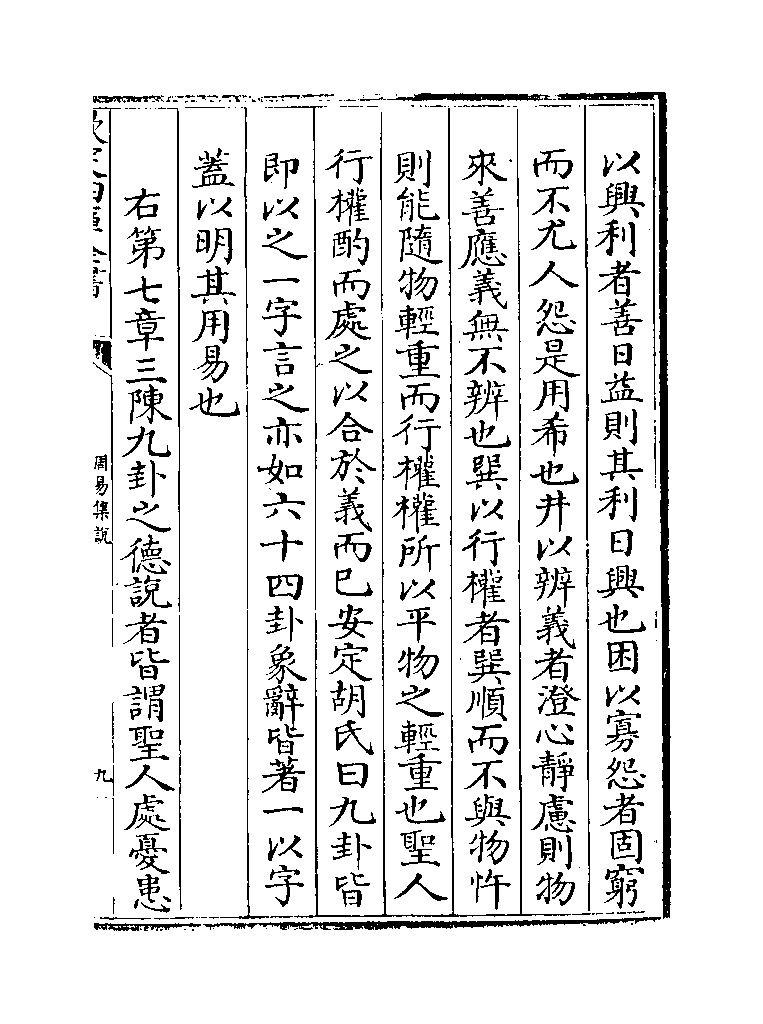 以興利者善日益則其利日興也困以寡怨者固窮
而不尤人怨是用希也井以辨義者澄心靜慮則物
來善應義無不辨也巽以行權者巽順而不與物忤
則能隨物輕重而行權權所以平物之輕重也聖人
行權酌而處之以合於義而已安定胡氏曰九卦皆
即以之一字言之亦如六十四卦象辭皆著一以字
蓋以明其用易也
右第七章三陳九卦之德說者皆謂聖人處憂患
欽定四庫全書
周易集說
九